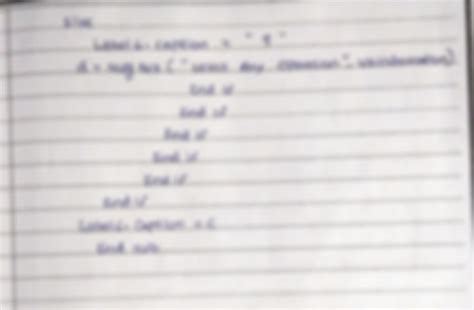 Else
Label6.Caption = " "
d = msgbox ("Select Any Operation",
End if
End if
End if
End if
End if
End if
Label6.Caption = c
End sub